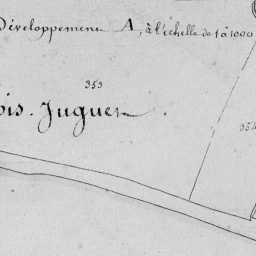 Développement A, à l'échelle de 1 à 1000
353
ois. Juguet